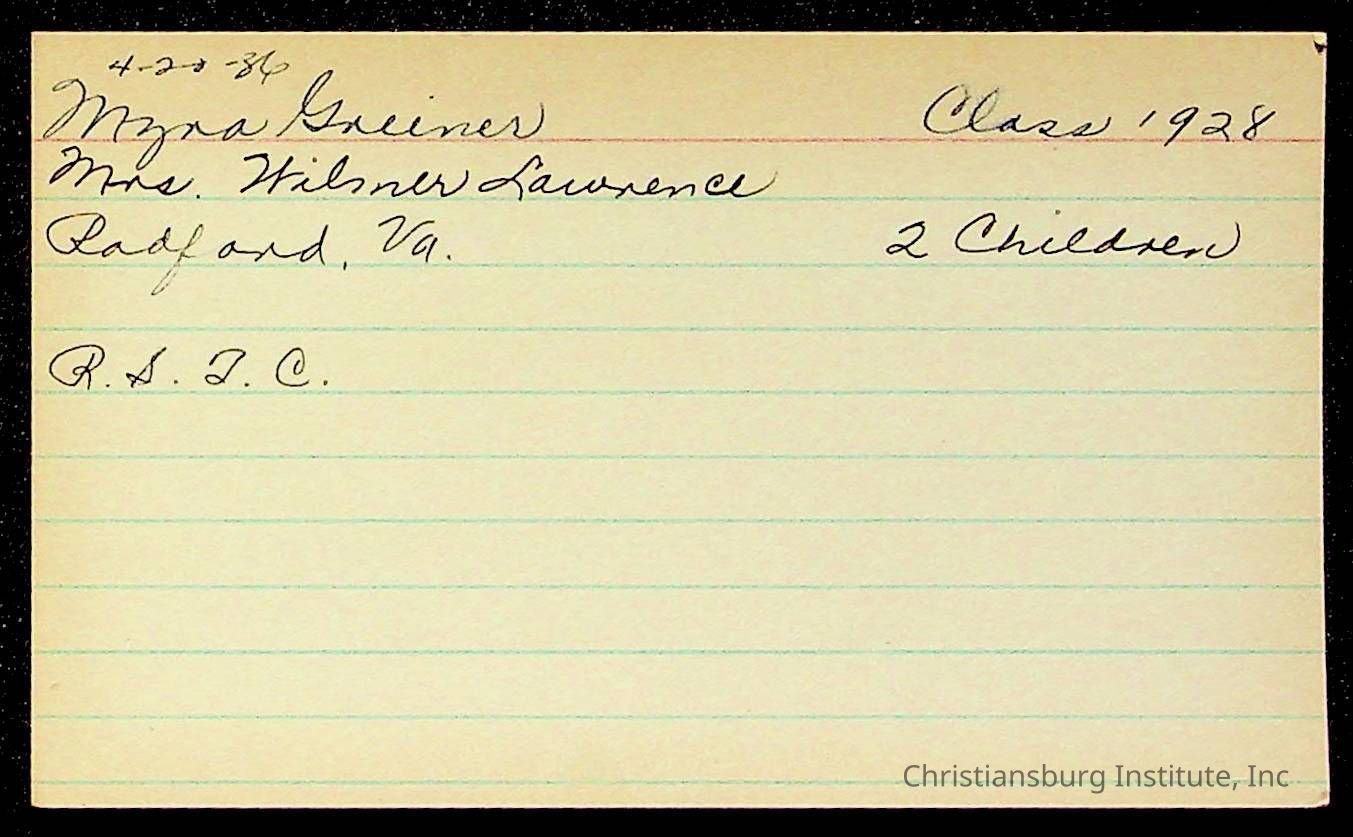 4-20-36
Myra Greiner Class 1928
Mrs. Wilmer Lawrence
Radford, Va. 2 Children
R. S. T. C.
Christiansburg Institute, Inc